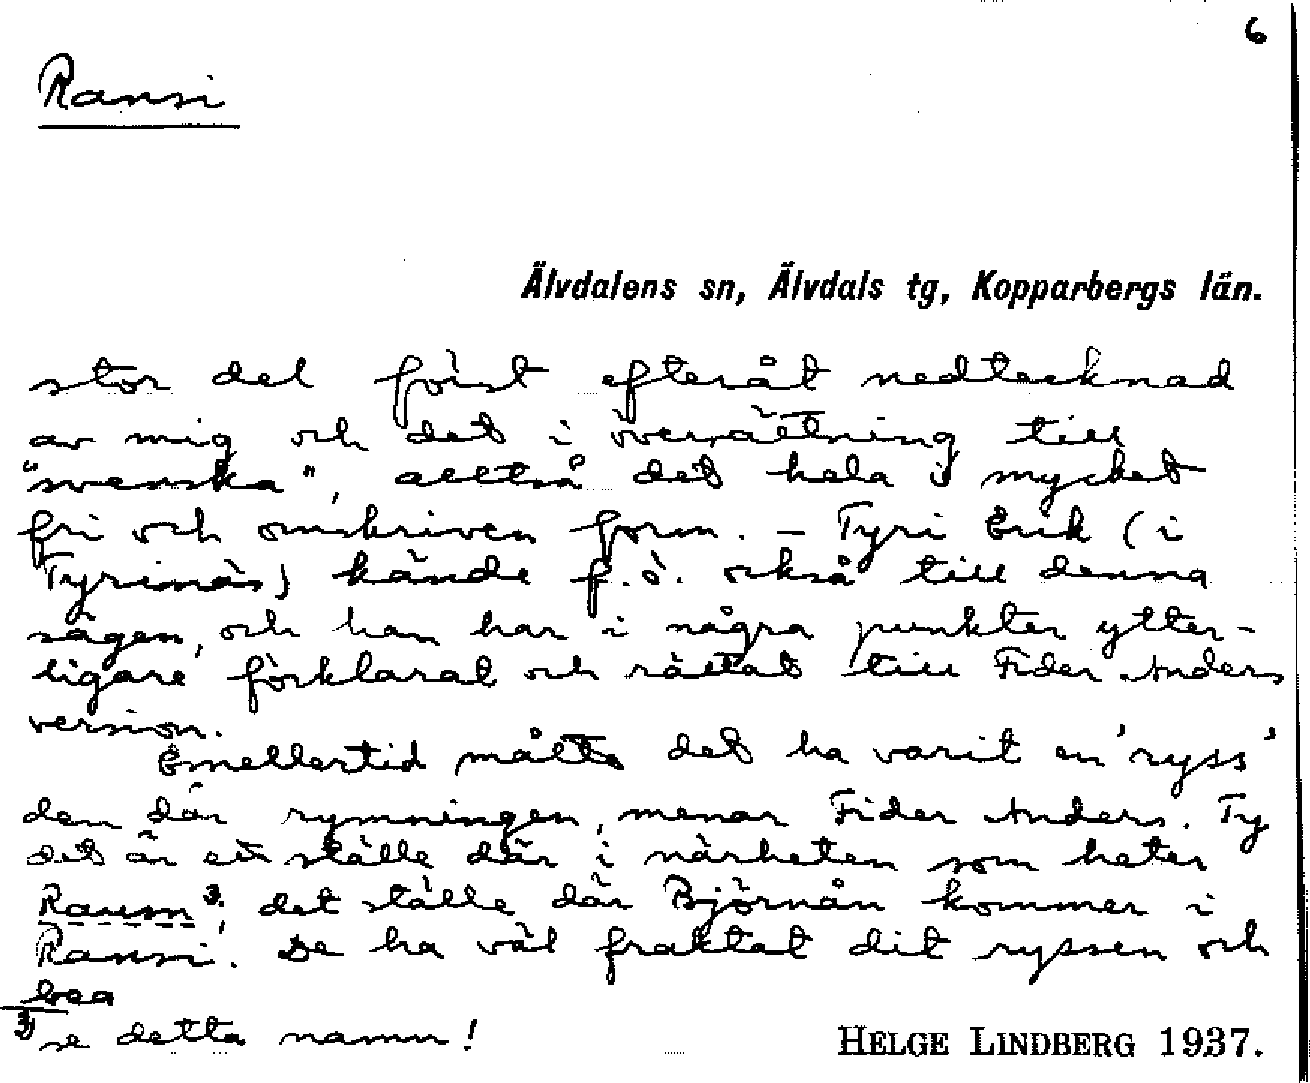 6
Ransi
Älvdalens sn, Älvdals tg, Kopparbergs län.
stor del först efteråt nedtecknad
av mig och det i översättning till
"svenska", alltså det hela i mycket
fri och omskriven form. – Tyri Erik (i
Tyrinäs) kände f.ö. också till denna
sägen, och han har i några punkter ytter-
ligare förklarat och rättat till Fider Anders
version.
Emellertid måtte det ha varit en 'ryss'
den där rymningen, menar Fider Anders. Ty
det är ett ställe där i närheten som heter
3; det ställe där Björnån kommer i
Ransi. De ha väl fraktat dit ryssen och
3) se detta namn!
HELGE LINDBERG 1937.